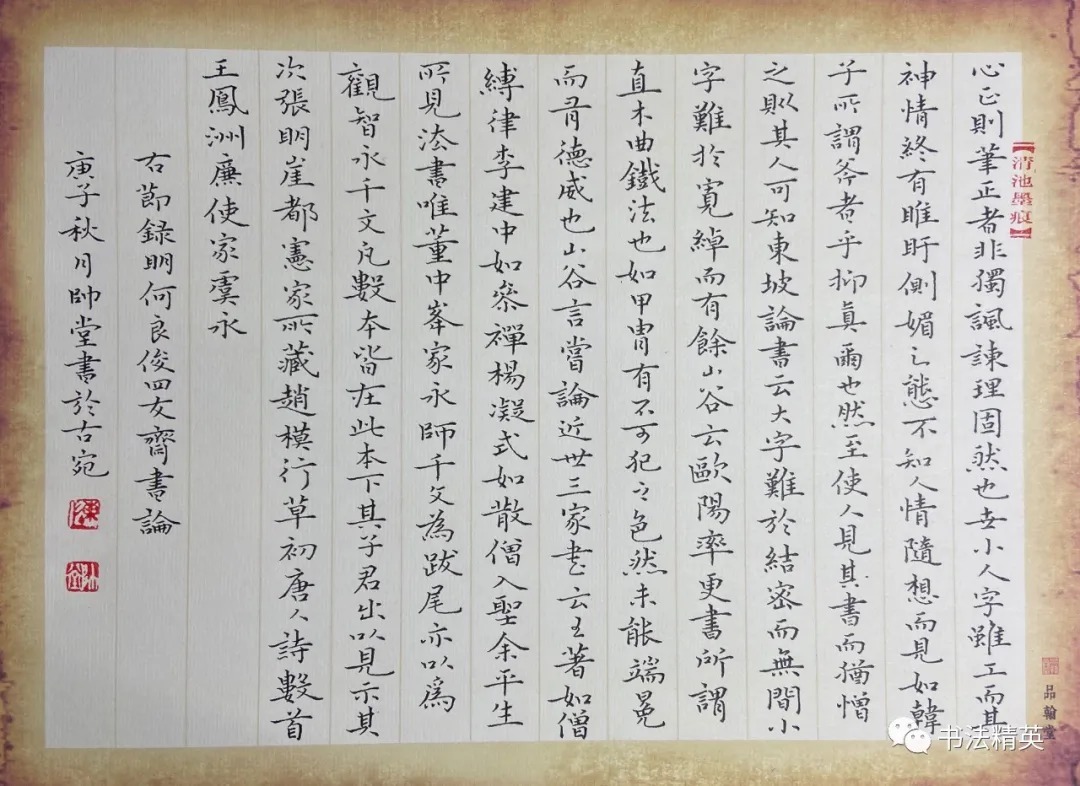 心正則筆正者非獨諷諫理固然也世小人字雖工而其
神情終有睢盱側媚之態不知人情隨想而見如韓
子所謂斧者乎抑真爾也然至使人見其書而猶憎
之則其人可知東坡論書云大字難於結密而無間小
字難於寬綽而有餘山谷云歐陽率更書所謂
直木曲鐵法也如甲胄有不可犯之色然未能端冕
而有德威也山谷言嘗論近世三家書云王著如僧
縛律李建中如參禪楊凝式如散僧入聖余平生
所見法書唯董中峯家永師千文為跋尾亦以為
觀智永千文凡數本皆在此本下其子君出以見示其
次張明崖都憲家所藏趙模行草初唐人詩數首
王鳳洲廉使家虞永
右節錄明何良俊四友齋書論
庚子秋月帥堂書於古宛
【清池墨痕】
品翰堂
书法精英